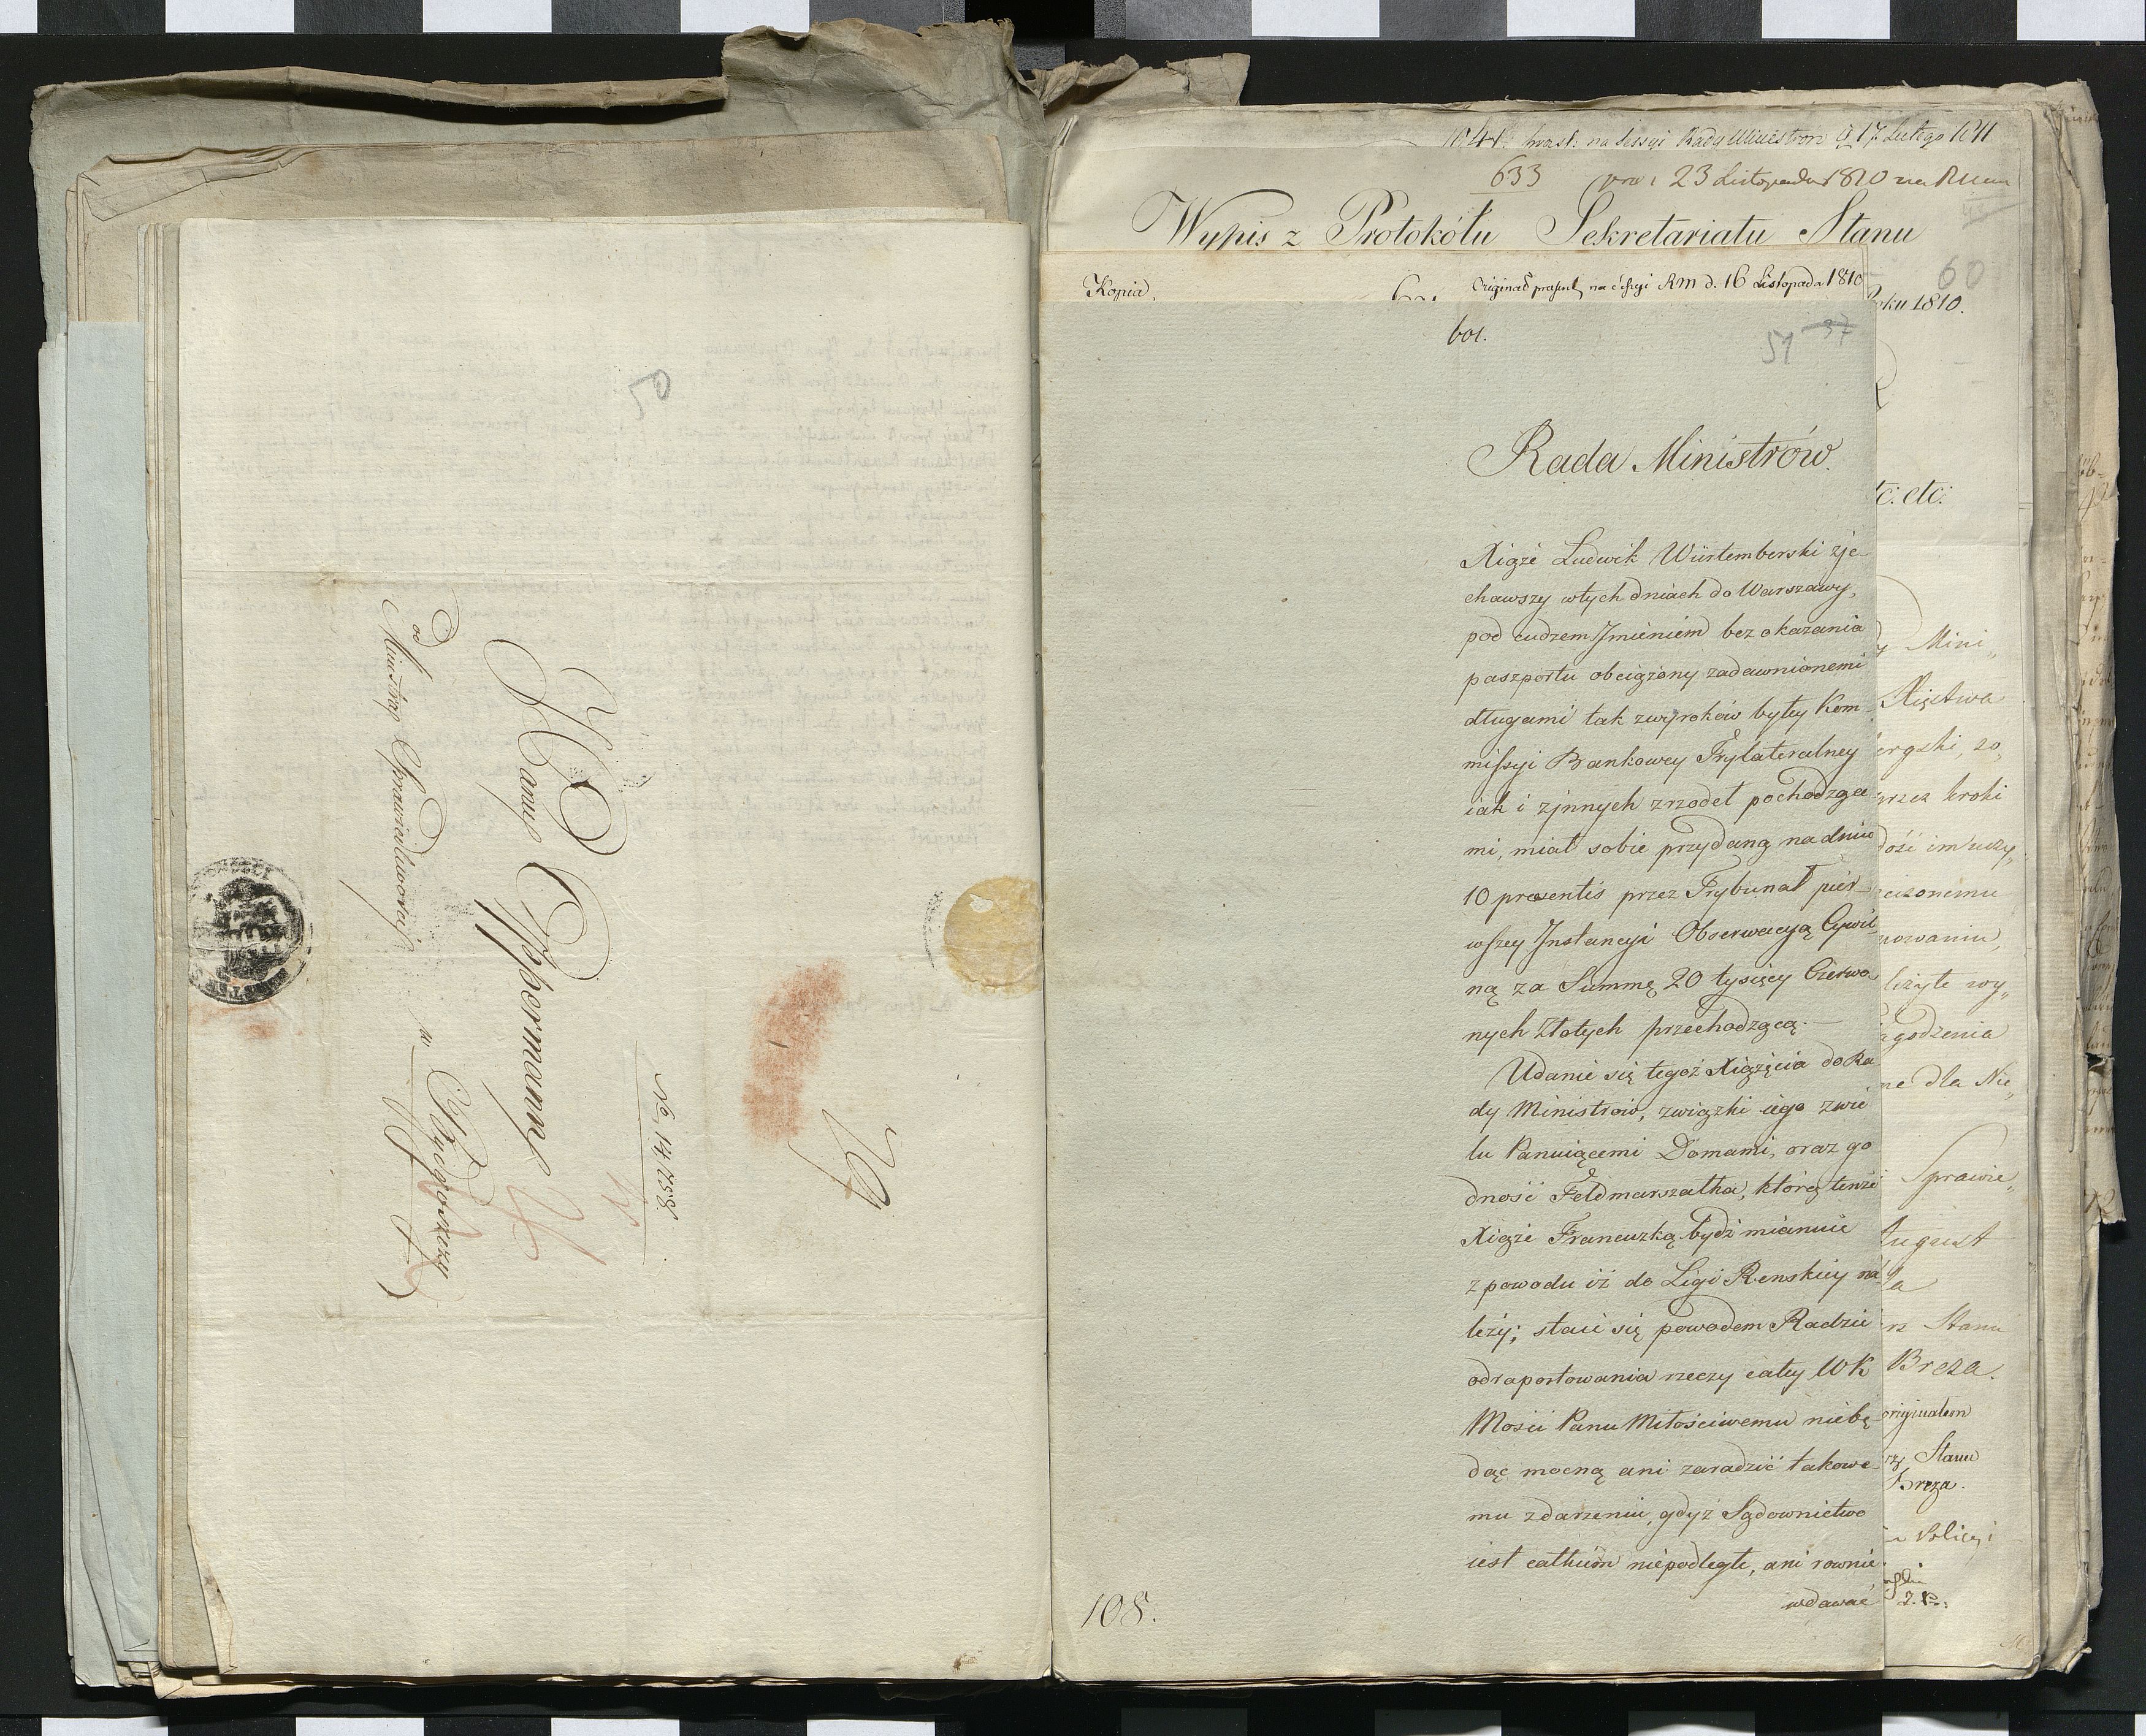 50
Od
Ministra Sprawiedliwości
Kanip Oppermann
w Bydgoszczy
No. 14,258
No. 44. na Sessyi Rady Ministrów d. 17 Lutego 1811
633 23 Listopada 1810 na
Wypis z Protokółu Sekretariatu Stanu
60
Kopia.
Originał na Sessyi RM d. 16 Listopada 1810
oku 1810.
601.
51 37
Rada Ministrów.
tc: etc:
Xiąże Ludwik Würtemberski zje-
chawszy wtych dniach do Warszawy,
pod cudzem Jmieniem bez okazania
paszportu obciążony zadawnionemi
długami tak zwyroków byłey Kom-
missyi Bankowey Trylateralney
iak i zjnnych zrzodeł pochodzące-
mi, miał sobie przydaną na dniu
10 praesentis przez Trybunał pier-
wszey Jnstancyi Obserwacyą Cywil-
ną za Summę 20 tysięcy Czerwo-
nych Złotych przechodzącą.-
Udanie się tegoż Xiążęcia do Ra-
dy Ministrów, związki iego zwie-
lu Panuiącemi Domami, oraz go-
dność Feldmarszałka, którą tenże
Xiąże Francuzką bydź mianuie
z powodu iż do Ligi Renskiey na-
leży; staie się powodem Radzie
odraportowania rzeczy całey WK
Mości Panu Miłościwemu niebę-
dąc mocną ani zaradzić takowe-
mu zdarzeniu, gdyż Sądownictwo
iest całkiem niepodległe, ani rownie
wdawać
108.
Mini„
Xięstwa
ergski, zo„
przez kroki
dość im uczy„
nowaniu,
leżyte wy„
godzenia
ne dla Nie„
Sprawie„
August
Stanu
Breza.
originałem
Stanu
Breza.
Policyi